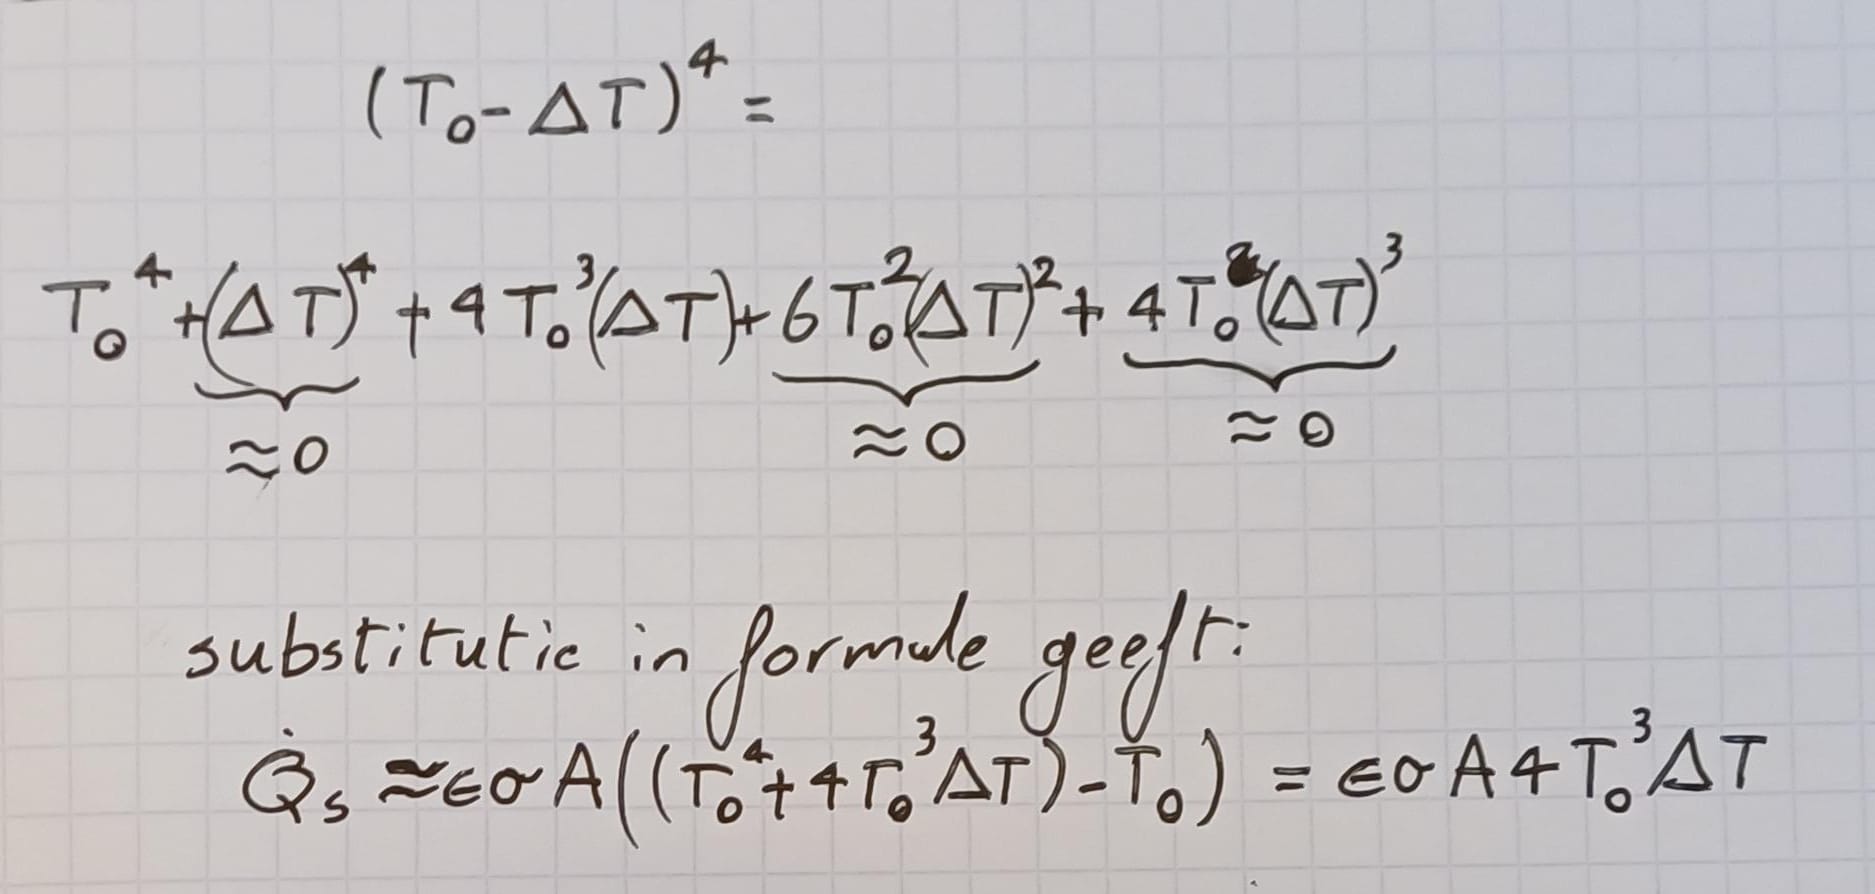 (T₀-ΔT)⁴=
T₀⁴+(ΔT)⁴+4T₀³(ΔT)+6T₀²(ΔT)²+4T₀(ΔT)³
≈0 ≈0 ≈0
substitutie in formule geeft:
Q̇s ≈ϵσA((T₀⁴+4T₀³ΔT)-T₀) = ϵσA4T₀³ΔT